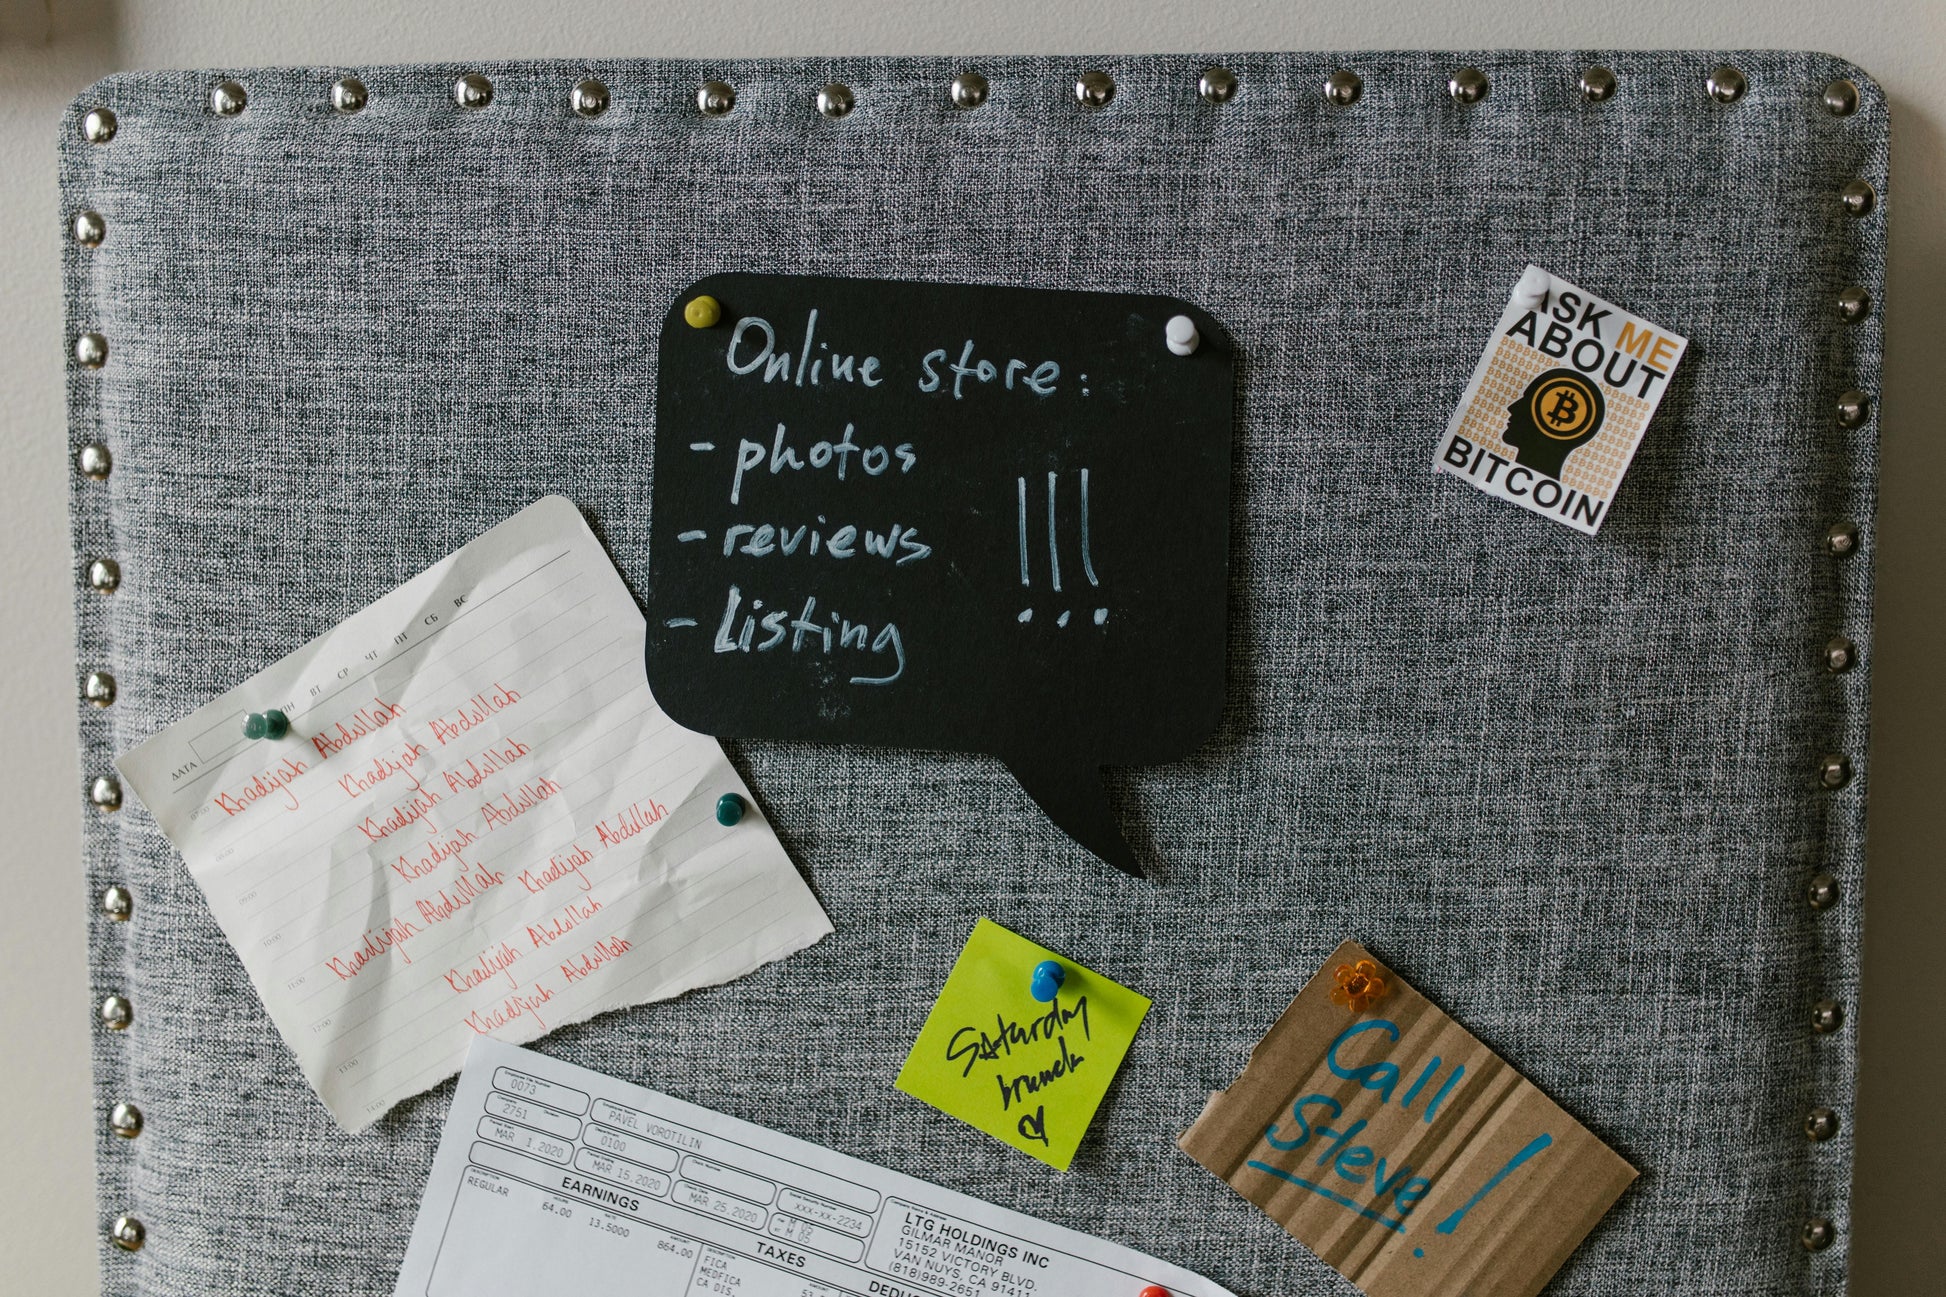 Online store:
- photos
- reviews
- Listing
!!!
ASK ME
ABOUT
BITCOIN
ДАТА
ПН ВТ СР ЧТ ПТ СБ ВС
07:00
08:00
09:00
10:00
11:00
12:00
13:00
14:00
Khadijah Abdullah
Khadijah Abdullah
Khadijah Abdullah
Khadijah Abdullah
Khadijah Abdullah
Khadijah Abdullah
Khadijah Abdullah
Khadijah Abdullah
Saturday
brunch
Call
Steve!
0073
2751
PAVEL VOROTILIN
0100
MAR 1.2020
MAR 15.2020
MAR 25.2020
XXX-XX-2234
LTG HOLDINGS INC
GILMAR MANOR
15152 VICTORY BLVD.
VAN NUYS, CA 91411
(818)989-2651
DESCRIPTION
EARNINGS
REGULAR
HOURS
64.00
RATE
13.5000
AMOUNT
864.00
TAXES
DESCRIPTION
FICA
MEDFICA
CA DIS.